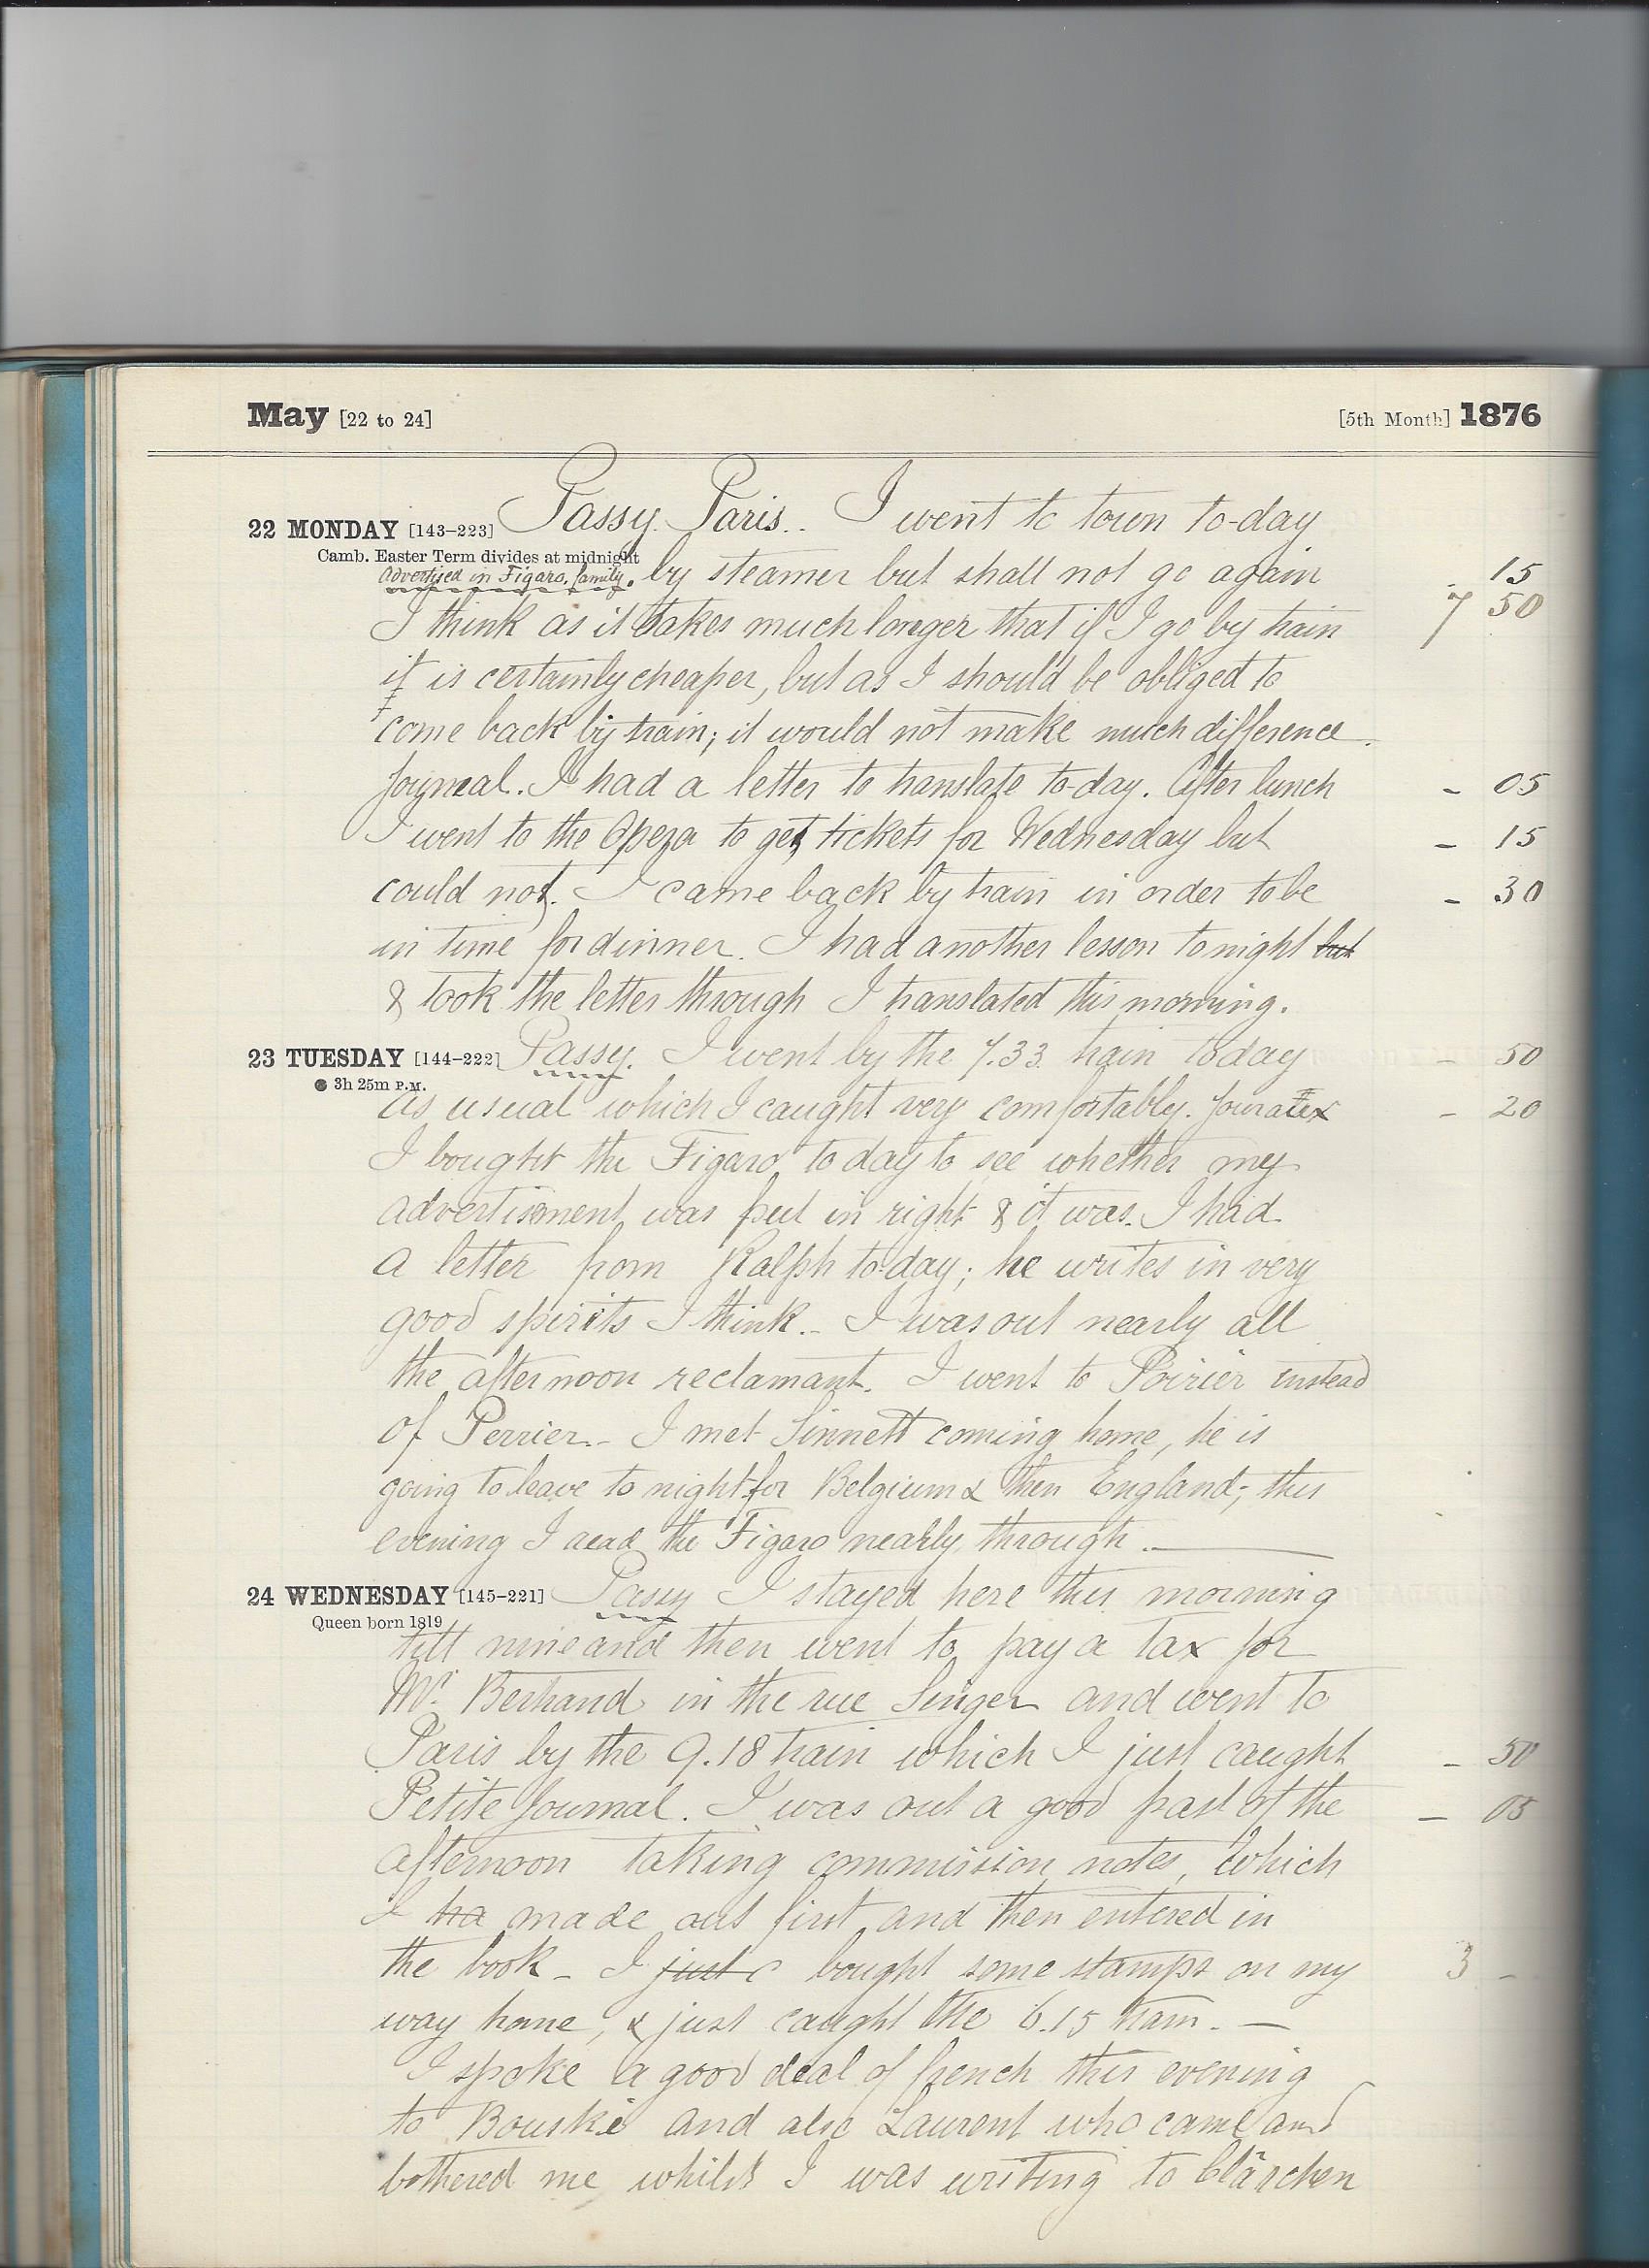 May [22 to 24] [5th Month] 1876
22 MONDAY [143-223] Passy. Paris.. I went to town to-day
Camb. Easter Term divides at midnight
Advertised in Figaro, family. by steamer but shall not go again - 15
I think as it takes much longer that if I go by train 7 50
it is certainly cheaper, but as I should be obliged to
come back by train; it would not make much difference.
Journal. I had a letter to translate to-day. After lunch - 05
I went to the Opera to get tickets for Wednesday but - 15
could not. I came back by train in order to be - 30
in time for dinner. I had another lesson to night but
& took the letter through I translated this morning.
23 TUESDAY [144-222] Passy. I went by the 7.33 train today - 50
3h 25m P.M.
as usual which I caught very comfortably. - 20
I bought the Figaro to day to see whether my
advertisment was put in right & it was. I had
a letter from Ralph to-day; he writes in very
good spirits I think.- I was out nearly all
the afternoon reclamant. I went to Poirier instead
of Perrier.- I met Sinnett coming home, he is
going to leave to night for Belgium & then England; this
evening I read the Figaro nearly through.-
24 WEDNESDAY [145-221] Passy I stayed here this morning
Queen born 1819
till nine and then went to pay a tax for
Mr. Bertrand in the rue Singer and went to
Paris by the 9.18 train which I just caught - 50
Petite Journal. I was out a good part of the - 05
afternoon taking commission notes, which
I ha made out first and then entered in
the book - I just c bought some stamps on my 3 -
way home, & just caught the 6.15 train. -
I spoke a good deal of french this evening
to Bouské and also Laurent who came and
bothered me whilst I was writing to Clärchen